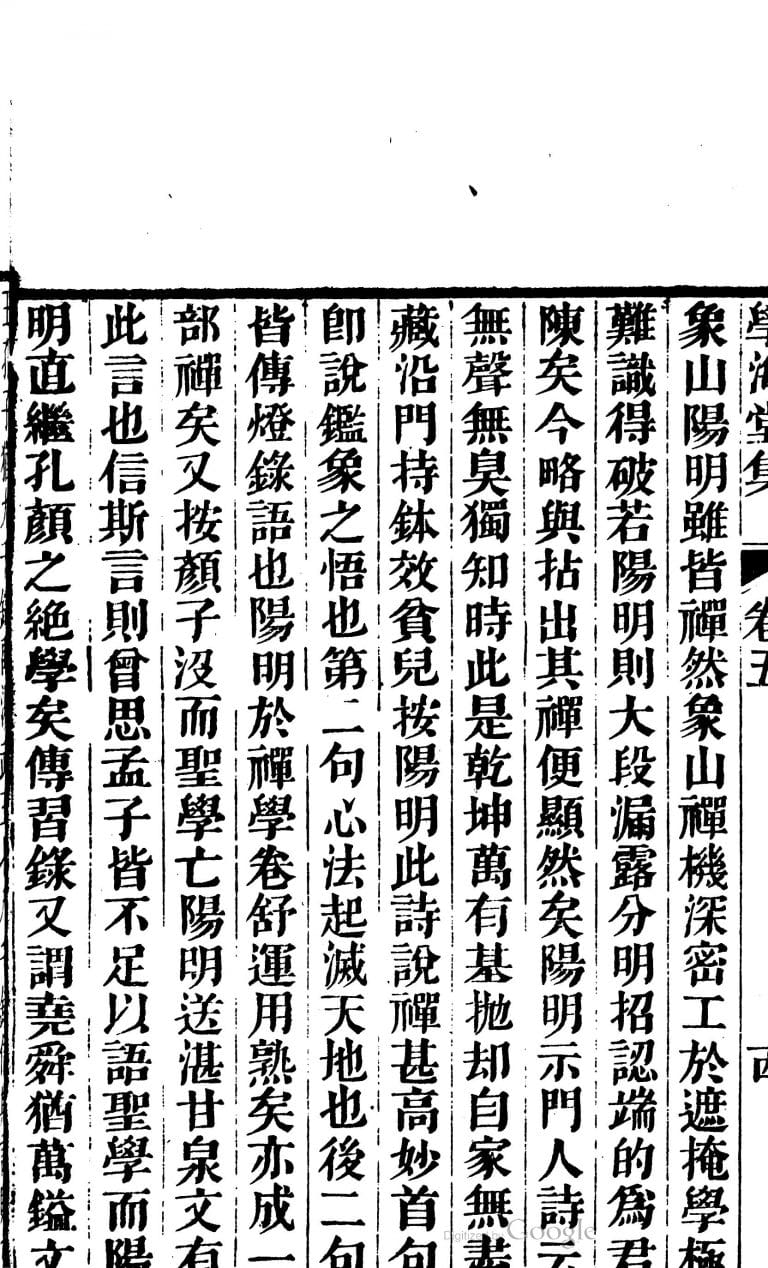 學海堂集 卷五
象山陽明雖皆禪然象山禪機深密工於遮掩學極
難識得破若陽明則大段漏露分明招認端的爲君
陳矣今略與拈出其禪便顯然矣陽明示門人詩云
無聲無臭獨知時此是乾坤萬有基抛却自家無盡
藏沿門持鉢效貧兒按陽明此詩說禪甚高妙首句
卽說鑑象之悟也第二句心法起滅天地也後二句
皆傳燈錄語也陽明於禪學卷舒運用熟矣亦成一
部禪矣又按顏子沒而聖學亡陽明送湛甘泉文有
此言也信斯言則曾思孟子皆不足以語聖學而陽
明直繼孔顏之絶學矣傳習錄又謂堯舜猶萬鎰文
Digitized by Google